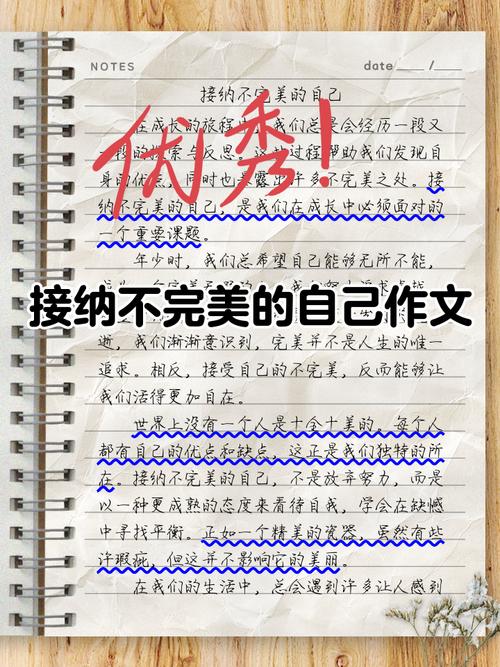 NOTES
date ____ / ____
接纳不完美的自己
优秀!
在成长的旅程中，我们总是会经历一段又
段的探索与反思。这些过程帮助我们发现自
身的优点，同时也暴露出许多不完美之处。接
纳不完美的自己，是我们在成长中必须面对的
一个重要课题。
年少时，我们总希望自己能够无所不能，
接纳不完美的自己作文
逝，我们渐渐意识到，完美并不是人生的唯一
追求。相反，接受自己的不完美，反而能够让
我们活得更加自在。
世界上没有一个人是十全十美的。每个人
都有自己的优点和缺点，这正是我们独特的所
在。接纳不完美的自己，不是放弃努力，而是
以一种更成熟的态度来看待自我，学会在缺憾
中寻找平衡。正如一个精美的瓷器，虽然有些
许瑕疵，但这并不影响它的美丽。
在我们的生活中，总会遇到许多让人感到